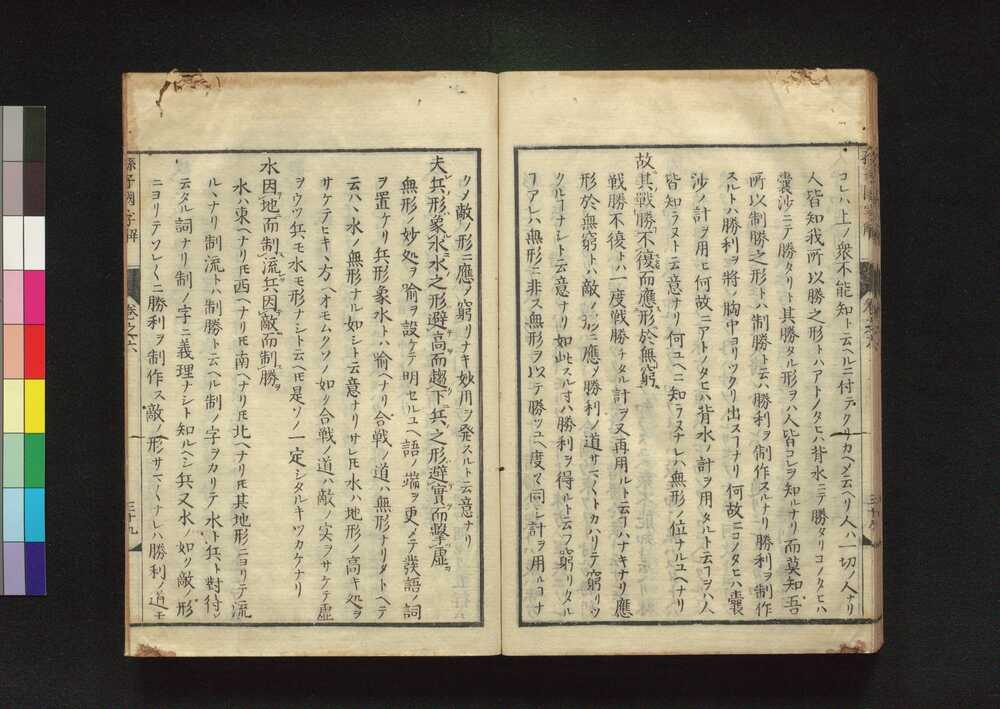 コレハ上ノ衆不能知ト云ヘルニ付テクリカヘメ云ヘリ人ハ一切ノ人ナリ
人皆知我所以勝之形トハアトノタヒハ背水ニテ勝タリコノタヒハ
嚢沙ニテ勝タリト其勝タル形ヲハ人皆コレヲ知ルナリ而莫知吾
所以制勝之形トハ制勝ト云ハ勝利ヲ制作スルナリ勝利ヲ制作
スルトハ勝利ヲ將ノ胸中ヨリツクリ出スヿナリ何故ニコノタヒハ嚢
沙ノ計ヲ用ヒ何故ニアトノタヒハ背水ノ計ヲ用タルト云フヿヲハ人
皆知ラヌト云意ナリ何ユヘニ知ラヌナレハ無形ノ位ナルユヘナリ
故其戰勝不復而應形於無窮
戰勝不復トハ一度戰勝チタル計ヲ又再用ルト云フヿハナキナリ應
形於無窮トハ敵ノ形ニ應メ勝利ノ道サマ〱トカハリテ窮リツ
クルヿナシト云意ナリ如此スル寸ハ勝利ヲ得ルト云フ窮リタル
ヿアレハ無形ニ非ス無形ヲ以テ勝ツユヘ度マ同シ計ヲ用ルヿナ
クメ敵ノ形ニ應メ窮リナキ妙用ヲ発スルト云意ナリ
夫兵形象水水之形避高而趨下兵之形避實而擊虛
無形ノ妙処ヲ喩ヲ設ケテ明セルユヘ語ノ端ヲ更メテ發語ノ詞
ヲ置ケリ兵形象水トハ喩ヘナリ合戰ノ道ハ無形ナリタトヘテ
云ハヽ水ノ無形ナル如シト云意ナリサレ𪜈水ハ地形ノ高キ処ヲ
サケテヒキヽ方ヘオモムクソノ如ク合戰ノ道ハ敵ノ実ヲサケテ虛
ヲウツ兵モ水モ形ナシト云ヘ𪜈是ソノ一定シタルキツカケナリ
水因地而制流兵因敵而制勝
水ハ東ヘナリ𪜈西ヘナリ𪜈南ヘナリ𪜈北ヘナリ𪜈其地形ニヨリテ流
ルヽナリ制流トハ制勝ト云ヘル制ノ字ヲカリテ水ト兵ト對付メ
云タル詞ナリ制ノ字ニ義理ナシト知ルヘシ兵又水ノ如ク敵ノ形
ニヨリテソレ〱ニ勝利ヲ制作ス敵ノ形サマ〱ナレハ勝利ノ道モ
孫子國字解
卷之六
三十九